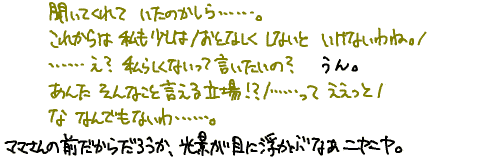 聞いてくれて いたのかしら……。
これからは 私も少しは/おとなしく しないと いけないわね。/
……え? 私らしくないって言いたいの? うん。
あんた そんなこと言える立場!?/……って ええっと/
な なんでもないわ……。
ママさんの前だからだろうか、光景が目に浮かぶなあニヤニヤ。